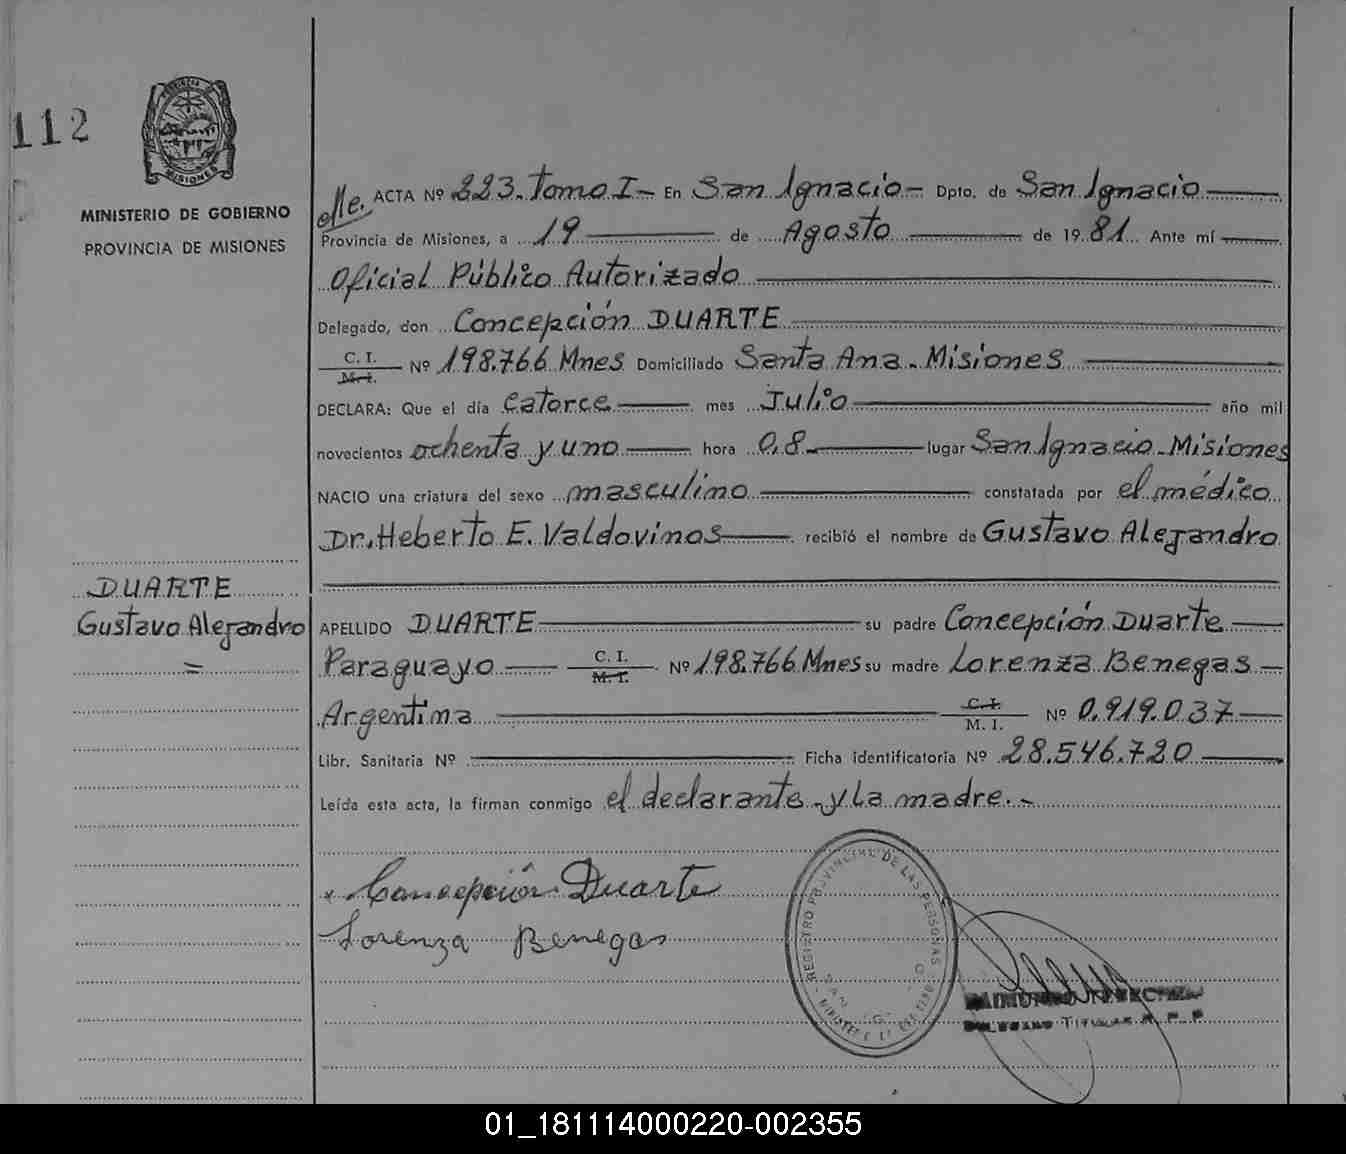 112
PROVINCIA DE
MISIONES
MINISTERIO DE GOBIERNO
PROVINCIA DE MISIONES
DUARTE
Gustavo Alejandro
=
ACTA Nº 223. Tomo I - En San Ignacio - Dpto. de San Ignacio
Provincia de Misiones, a 19 de Agosto de 1981 Ante mí
Oficial Público Autorizado
Delegado, don Concepción DUARTE
C. I.
M. I. Nº 198.766 Mnes Domiciliado Santa Ana - Misiones
DECLARA: Que el día catorce mes Julio año mil
novecientos ochenta y uno hora 0,8 lugar San Ignacio - Misiones
NACIO una criatura del sexo masculino constatada por el médico
Dr. Heberto E. Valdovinos recibió el nombre de Gustavo Alejandro
APELLIDO DUARTE su padre Concepción Duarte
Paraguayo C. I. M. I. Nº 198.766 Mnes su madre Lorenza Benegas
Argentina C. I. M. I. Nº 0.919.037
Libr. Sanitaria Nº Ficha identificatoria Nº 28.546.720
Leída esta acta, la firman conmigo el declarante - y la madre. -
Concepción Duarte
Lorenza Benegas
REGISTRO PROVINCIAL DE LAS PERSONAS
01_181114000220-002355